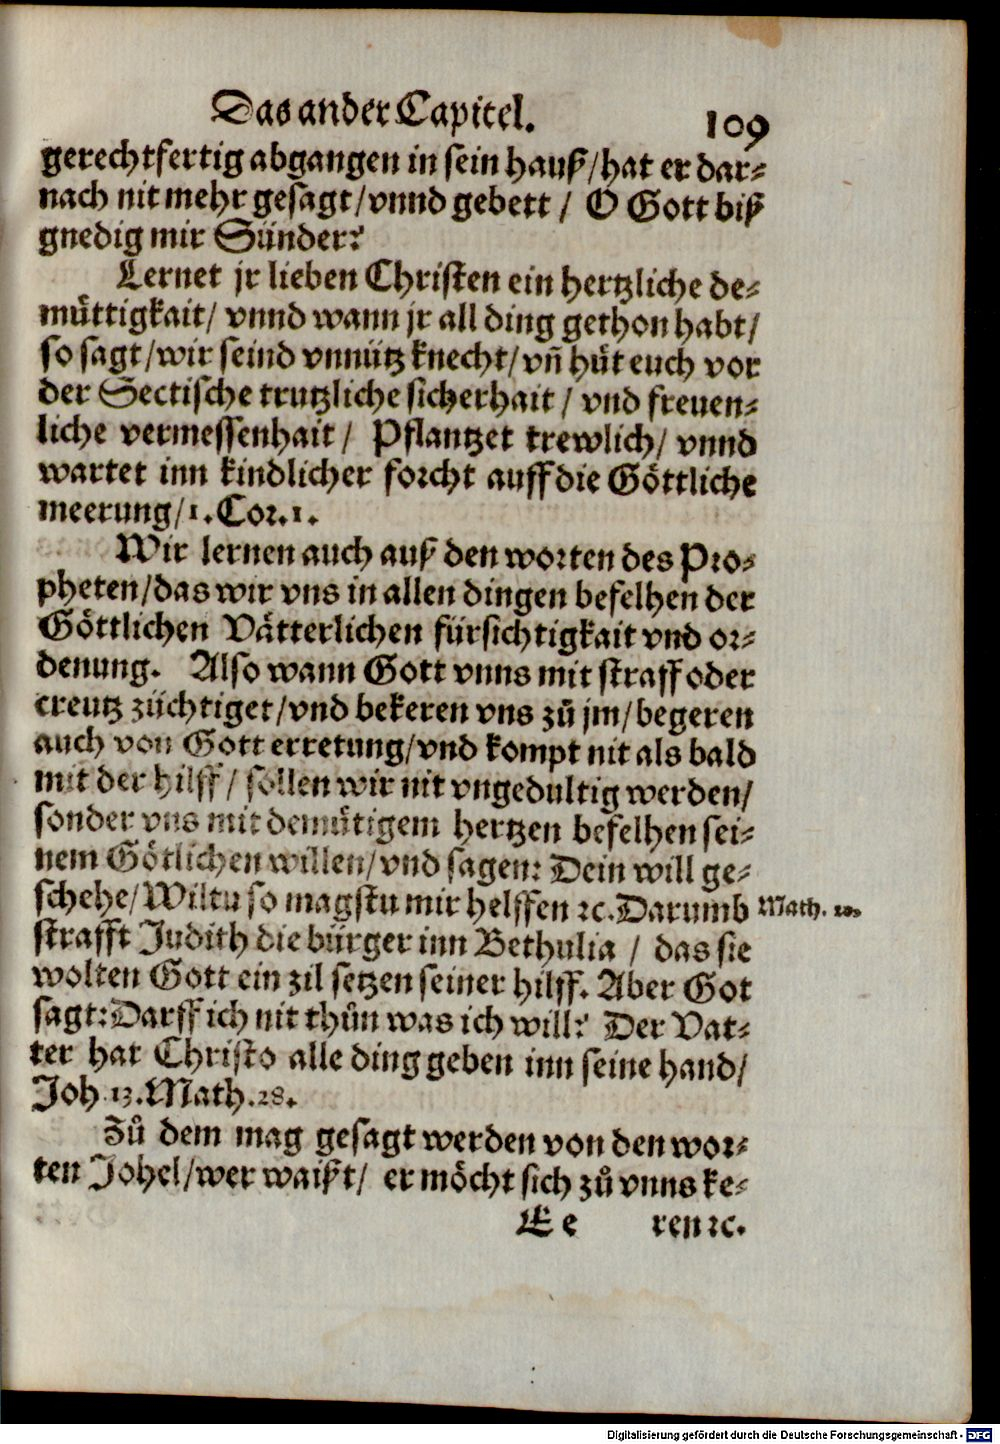 Das ander Capitel. 109
gerechtfertig abgangen in sein hauß/hat er dar-
nach nit mehr gesagt/vnnd gebett / O Gott biß
gnedig mir Sünder?
Lernet jr lieben Christen ein hertzliche de-
muͤttigkait/ vnnd wann jr all ding gethon habt/
so sagt/wir seind vnnütz knecht/vñ huͤt euch vor
der Sectische trutzliche sicherhait / vnd freuen-
liche vermessenhait / Pflantzet trewlich/ vnnd
wartet inn kindlicher forcht auff die Göttliche
meerung/1.Cor.1.
Wir lernen auch auß den worten des Pro-
pheten/das wir vns in allen dingen befelhen der
Göttlichen Vätterlichen fürsichtigkait vnd or-
denung. Also wann Gott vnns mit straff oder
creutz züchtiget/vnd bekeren vns zuͦ jm/begeren
auch von Gott erretung/vnd kompt nit als bald
mit der hilff / sollen wir nit vngedultig werden/
sonder vns mit demuͤtigem hertzen befelhen sei-
nem Götlichen willen/vnd sagen: Dein will ge-
schehe/Wiltu so magstu mir helffen ꝛc.Darumb Math. 10.
strafft Judith die bürger inn Bethulia / das sie
wolten Gott ein zil setzen seiner hilff. Aber Got
sagt:Darff ich nit thuͦn was ich will? Der Vat-
ter hat Christo alle ding geben inn seine hand/
Joh.13.Math.28.
Zuͦ dem mag gesagt werden von den wor-
ten Johel/wer waißt/ er möcht sich zuͦ vnns ke-
E e ren ꝛc.
Digitalisierung gefördert durch die Deutsche Forschungsgemeinschaft - DFG